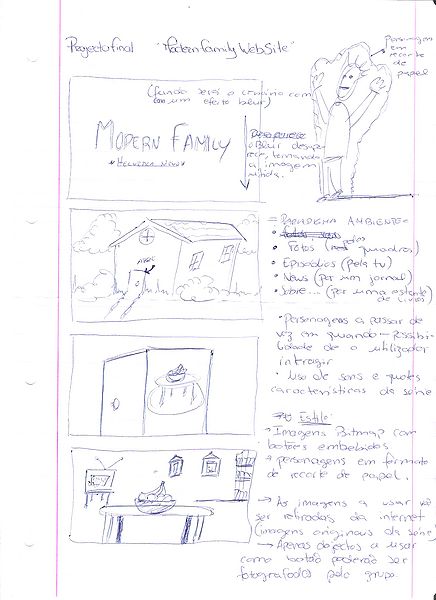 Projecto final "Modern Family WebSite"
Personagem
em
recorte
de
papel
(fundo será o cinzento com
um efeito blur)
MODERN FAMILY
*HELVETICA NEUE*
o Blur desapa-
rece, tornando
a imagem
nítida.
= PARADIGMA AMBIENTE=
• Fotos (pelos quadros)
• Episódios (pela tv)
• News (por um jornal)
• Sobre... (por uma estante
de livros)
• Personagens a passar de
vez em quando - Possibi-
lidade de o utilizador
interagir
• Uso de sons e quotes
características da série
Estilo
→ Imagens Bitmap com
botões embebidos
→ personagens em formato
de recorte de papel.
→ As imagens a usar vão
ser retiradas da internet
(imagens originais da série)
→ Apenas objectos a usar
como botão poderão ser
fotografado(s) pelo grupo.